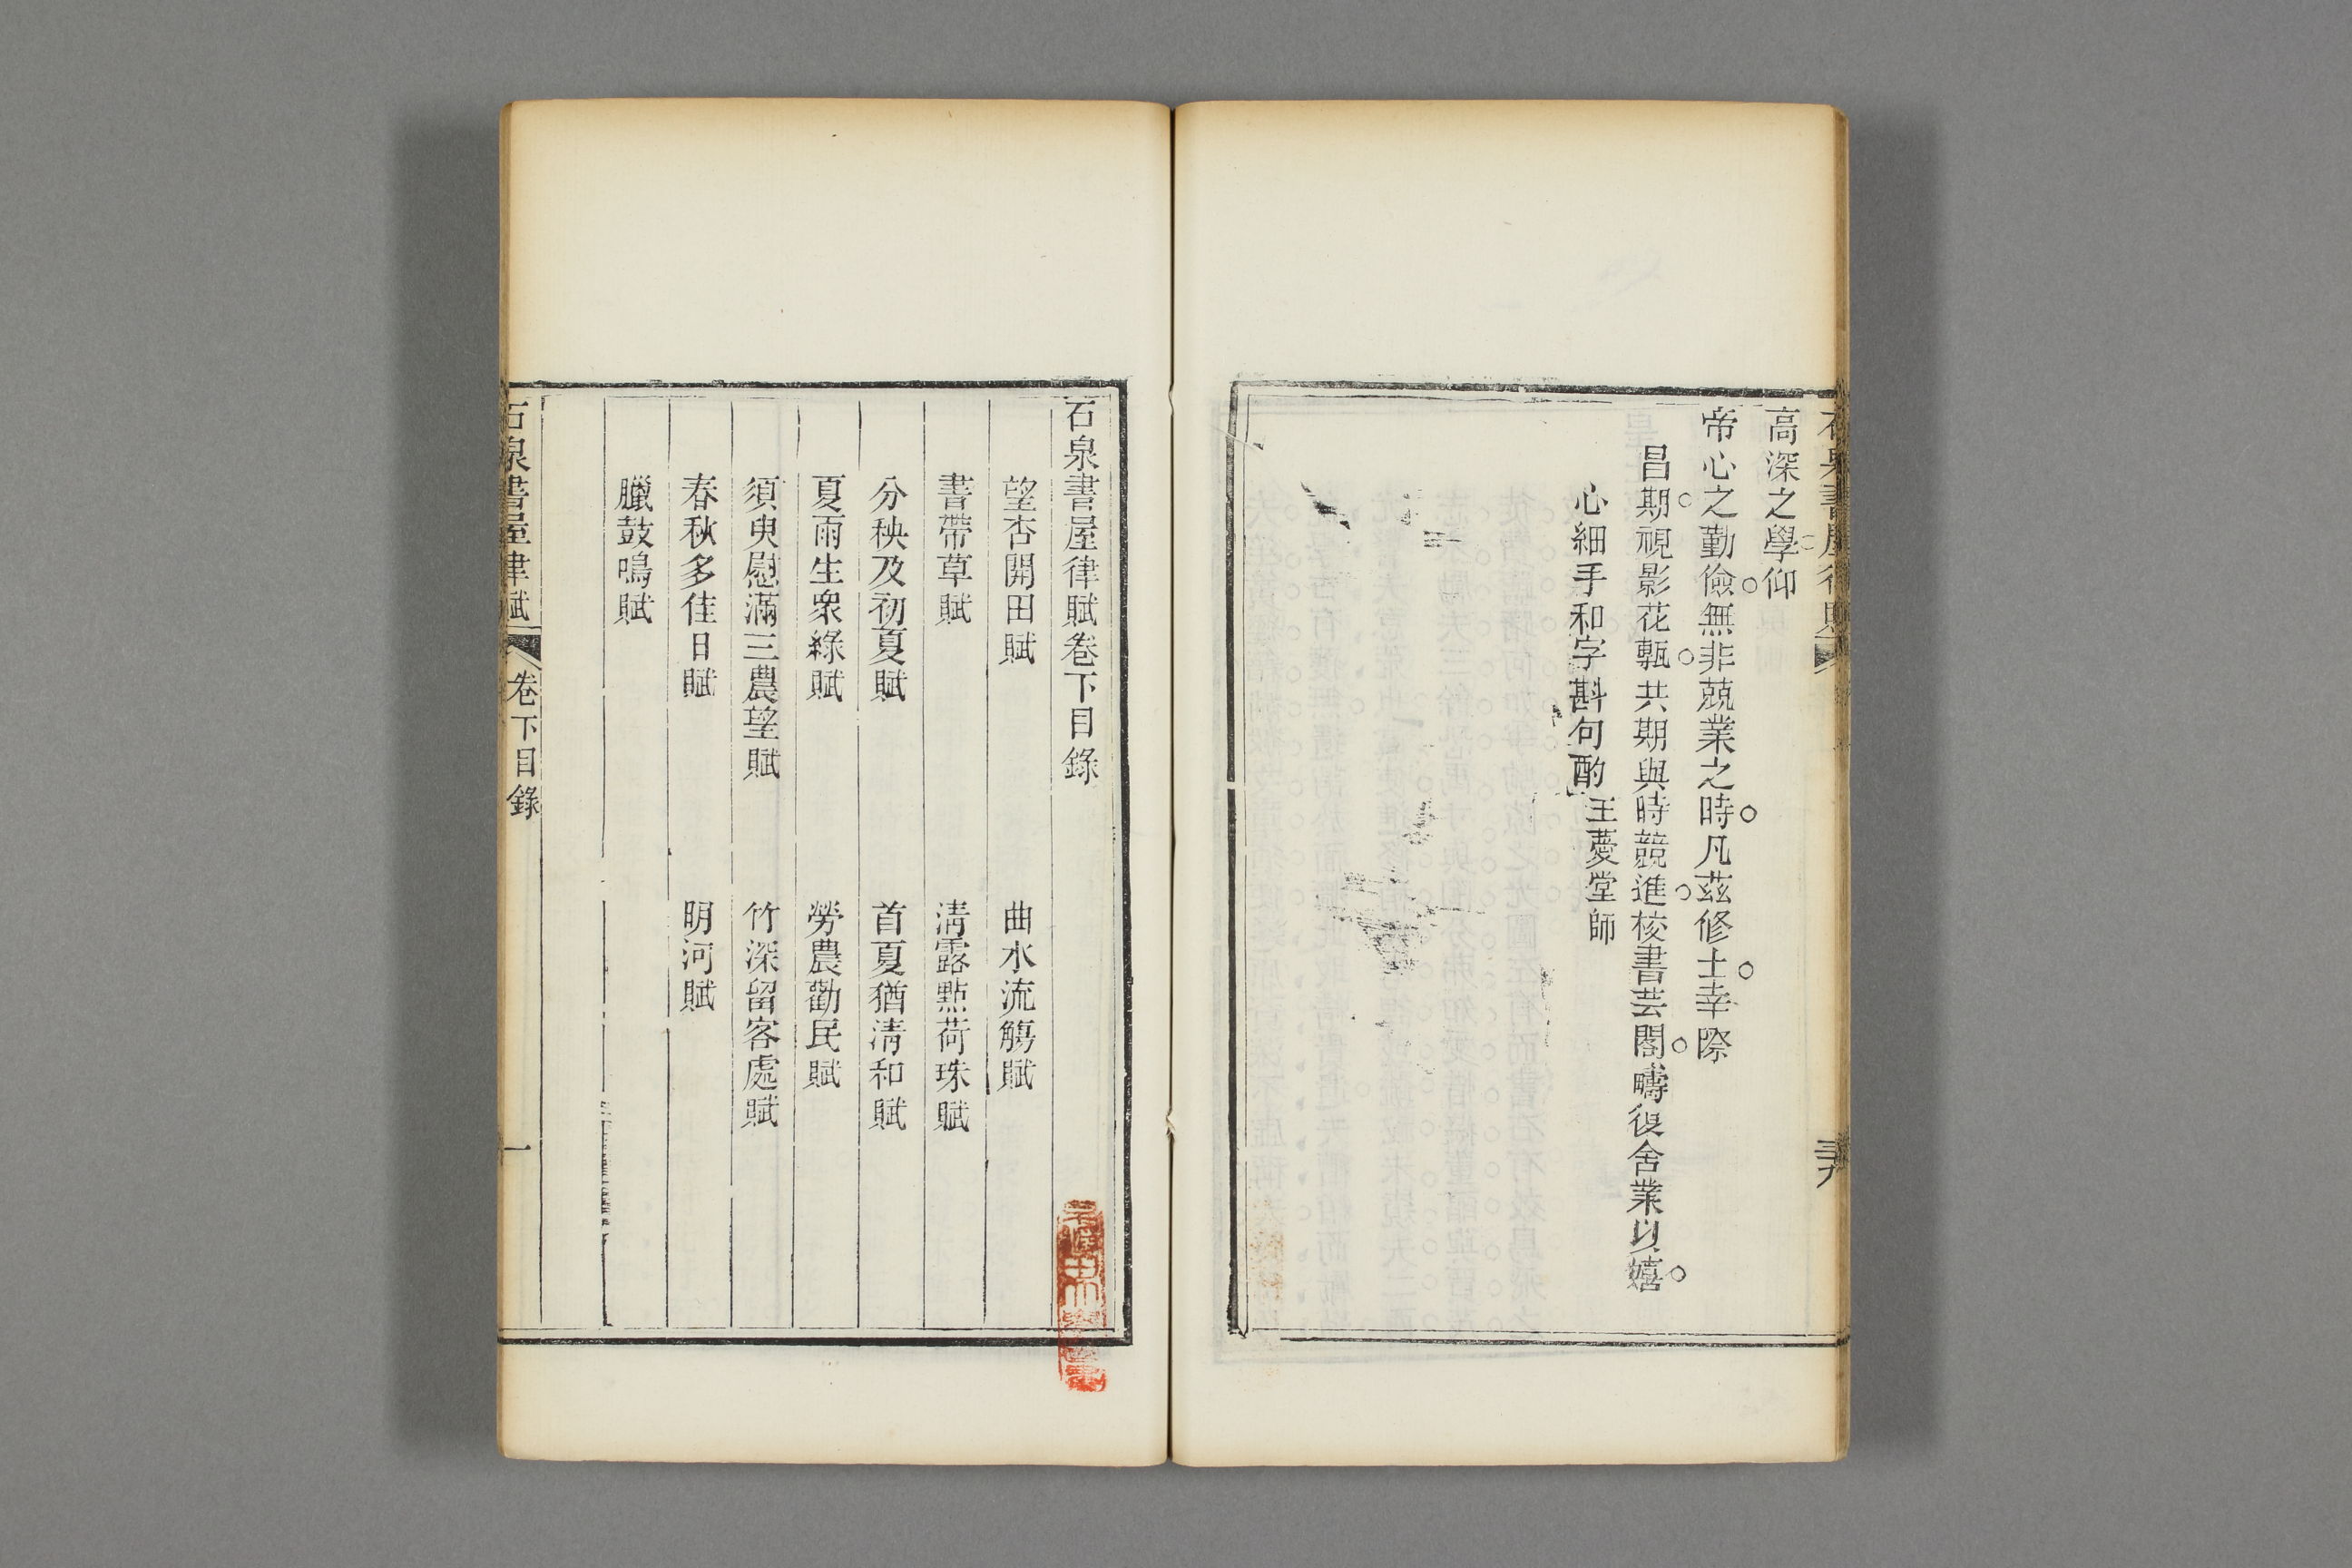 高深之學仰
帝心之勤儉無非兢業之時凡茲修士幸際
昌期視影花甎共期與時競進校書芸閣疇復舍業以嬉
心細手和字斟句酌王薆堂師
石泉書屋律賦
石泉書屋律賦卷下目錄
望杏開田賦
曲水流觴賦
書帶草賦
淸露點荷珠賦
分秧及初夏賦
首夏猶淸和賦
夏雨生衆綠賦
勞農勸民賦
須臾慰滿三農望賦
竹深留客處賦
春秋多佳日賦
明河賦
臘鼓鳴賦
石泉書屋律賦
卷下目錄
一